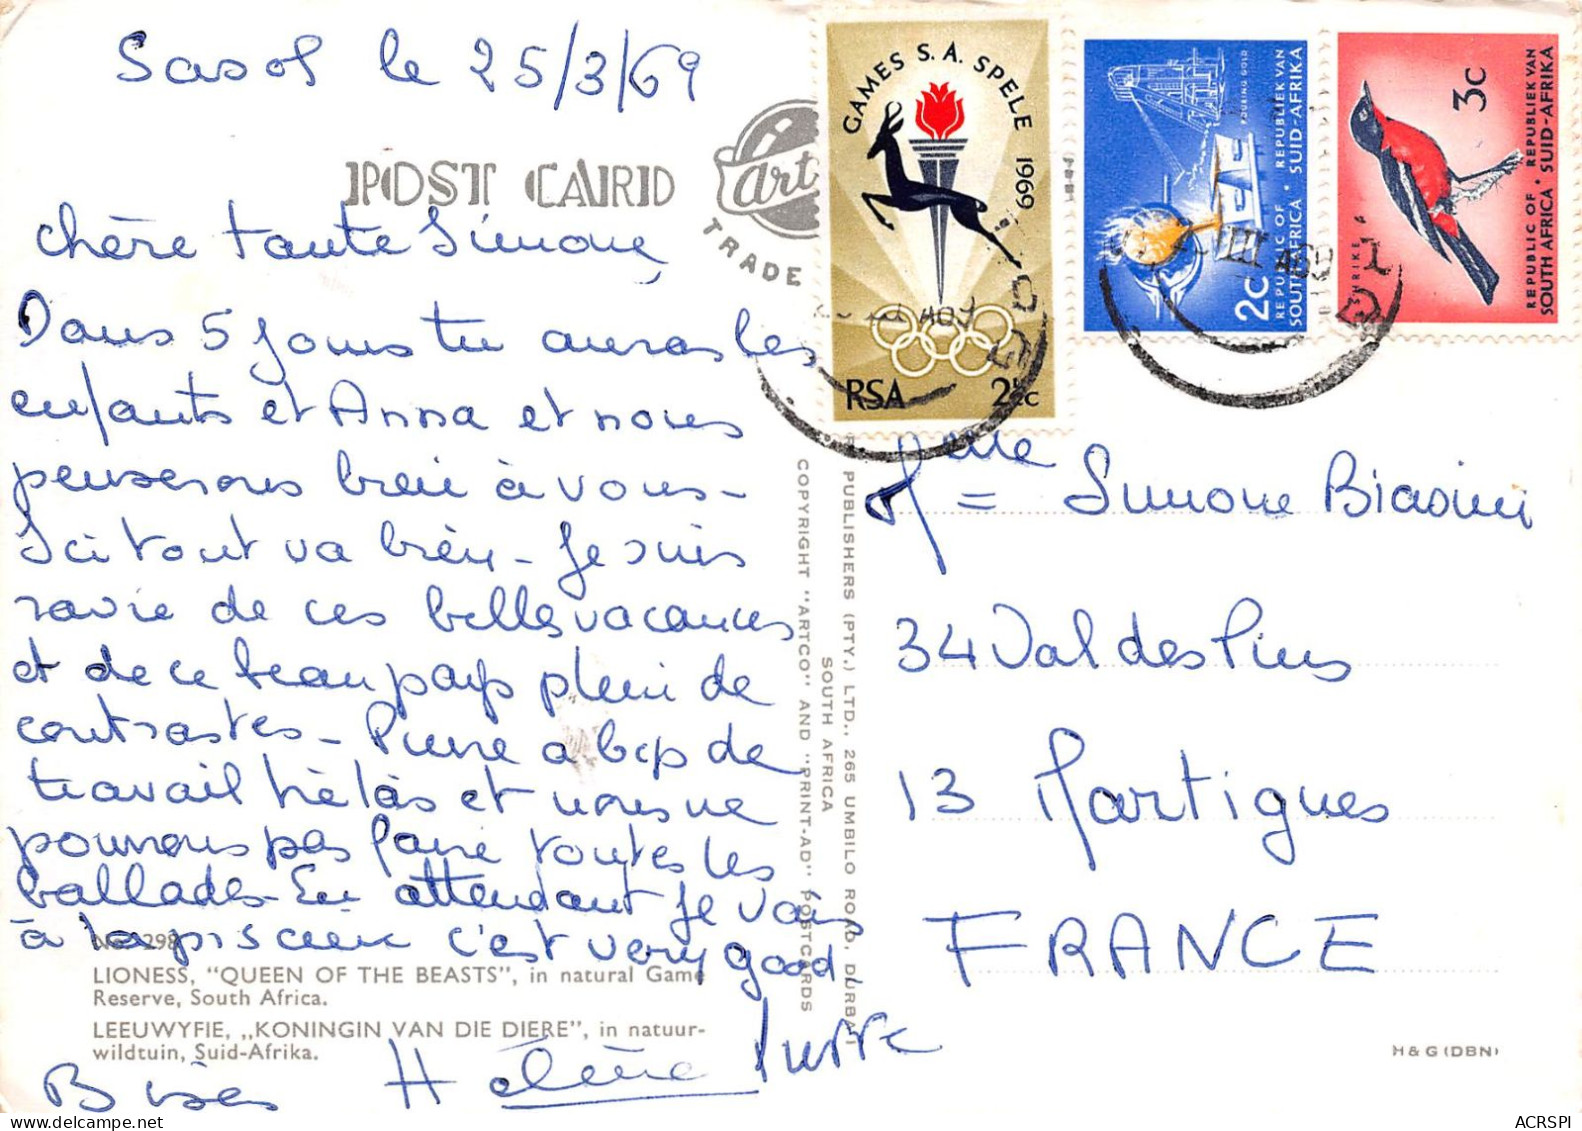 Sasol le 25/3/69
POST CARD
Art
TRADE
Chère tante Simone,
Dans 5 jours tu auras les
enfants et Anna et nous
penserons bien à vous-
Ici tout va bien - Je suis
ravie de ces belles vacances
et de ce beau pays plein de
contrastes - Pierre a bcp de
travail hélàs et nous ne
pourrons pas faire toutes les
ballades - En attendant je vais
à la piscine c'est very good,
Bises Hélène Pierre
No. 298
LIONESS, "QUEEN OF THE BEASTS", in natural Game
Reserve, South Africa.
LEEUWYFIE, „KONINGIN VAN DIE DIERE", in natuur-
wildtuin, Suid-Afrika.
COPYRIGHT "ARTCO" AND "PRINT-AD" POSTCARDS
SOUTH AFRICA
PUBLISHERS (PTY.) LTD., 265 UMBILO ROAD, DURBAN
GAMES S.A. SPELE 1969
RSA 2½c
POURING GOLD
2c
REPUBLIC OF REPUBLIEK VAN
SOUTH AFRICA SUID-AFRIKA
SHRIKE
3c
REPUBLIC OF · REPUBLIEK VAN
SOUTH AFRICA SUID-AFRIKA
III 69
Mme Simone Biasini
34 Val des Pins
13 Martigues
FRANCE
H & G (DBN)
ACRSPI